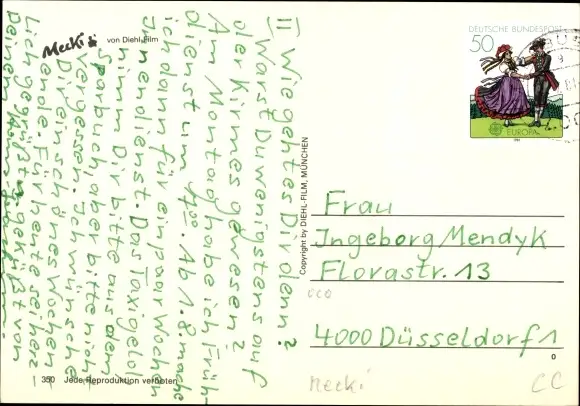 Mecki von Diehl-Film
DEUTSCHE BUNDESPOST
50
EUROPA
II Wie geht es Dir denn?
Warst Du wenigstens auf
der Kirmes gewesen?
Am Montag habe ich Früh-
dienst um 7 00. Ab 1.8 mache
ich dann für ein paar Wochen
Innendienst. Das Taxigeld
nimm Dir bitte aus dem
Sparbuch, aber bitte nicht
vergessen. Ich wünsche
Dir ein schönes Wochen-
ende. Für heute sei herz-
lich gegrüßt u. geküßt von
Deinem
Copyright by DIEHL-FILM, MÜNCHEN
Frau
Ingeborg Mendyk
Florastr. 13
4000 Düsseldorf 1
350 Jede Reproduktion verboten
Mecki
CC